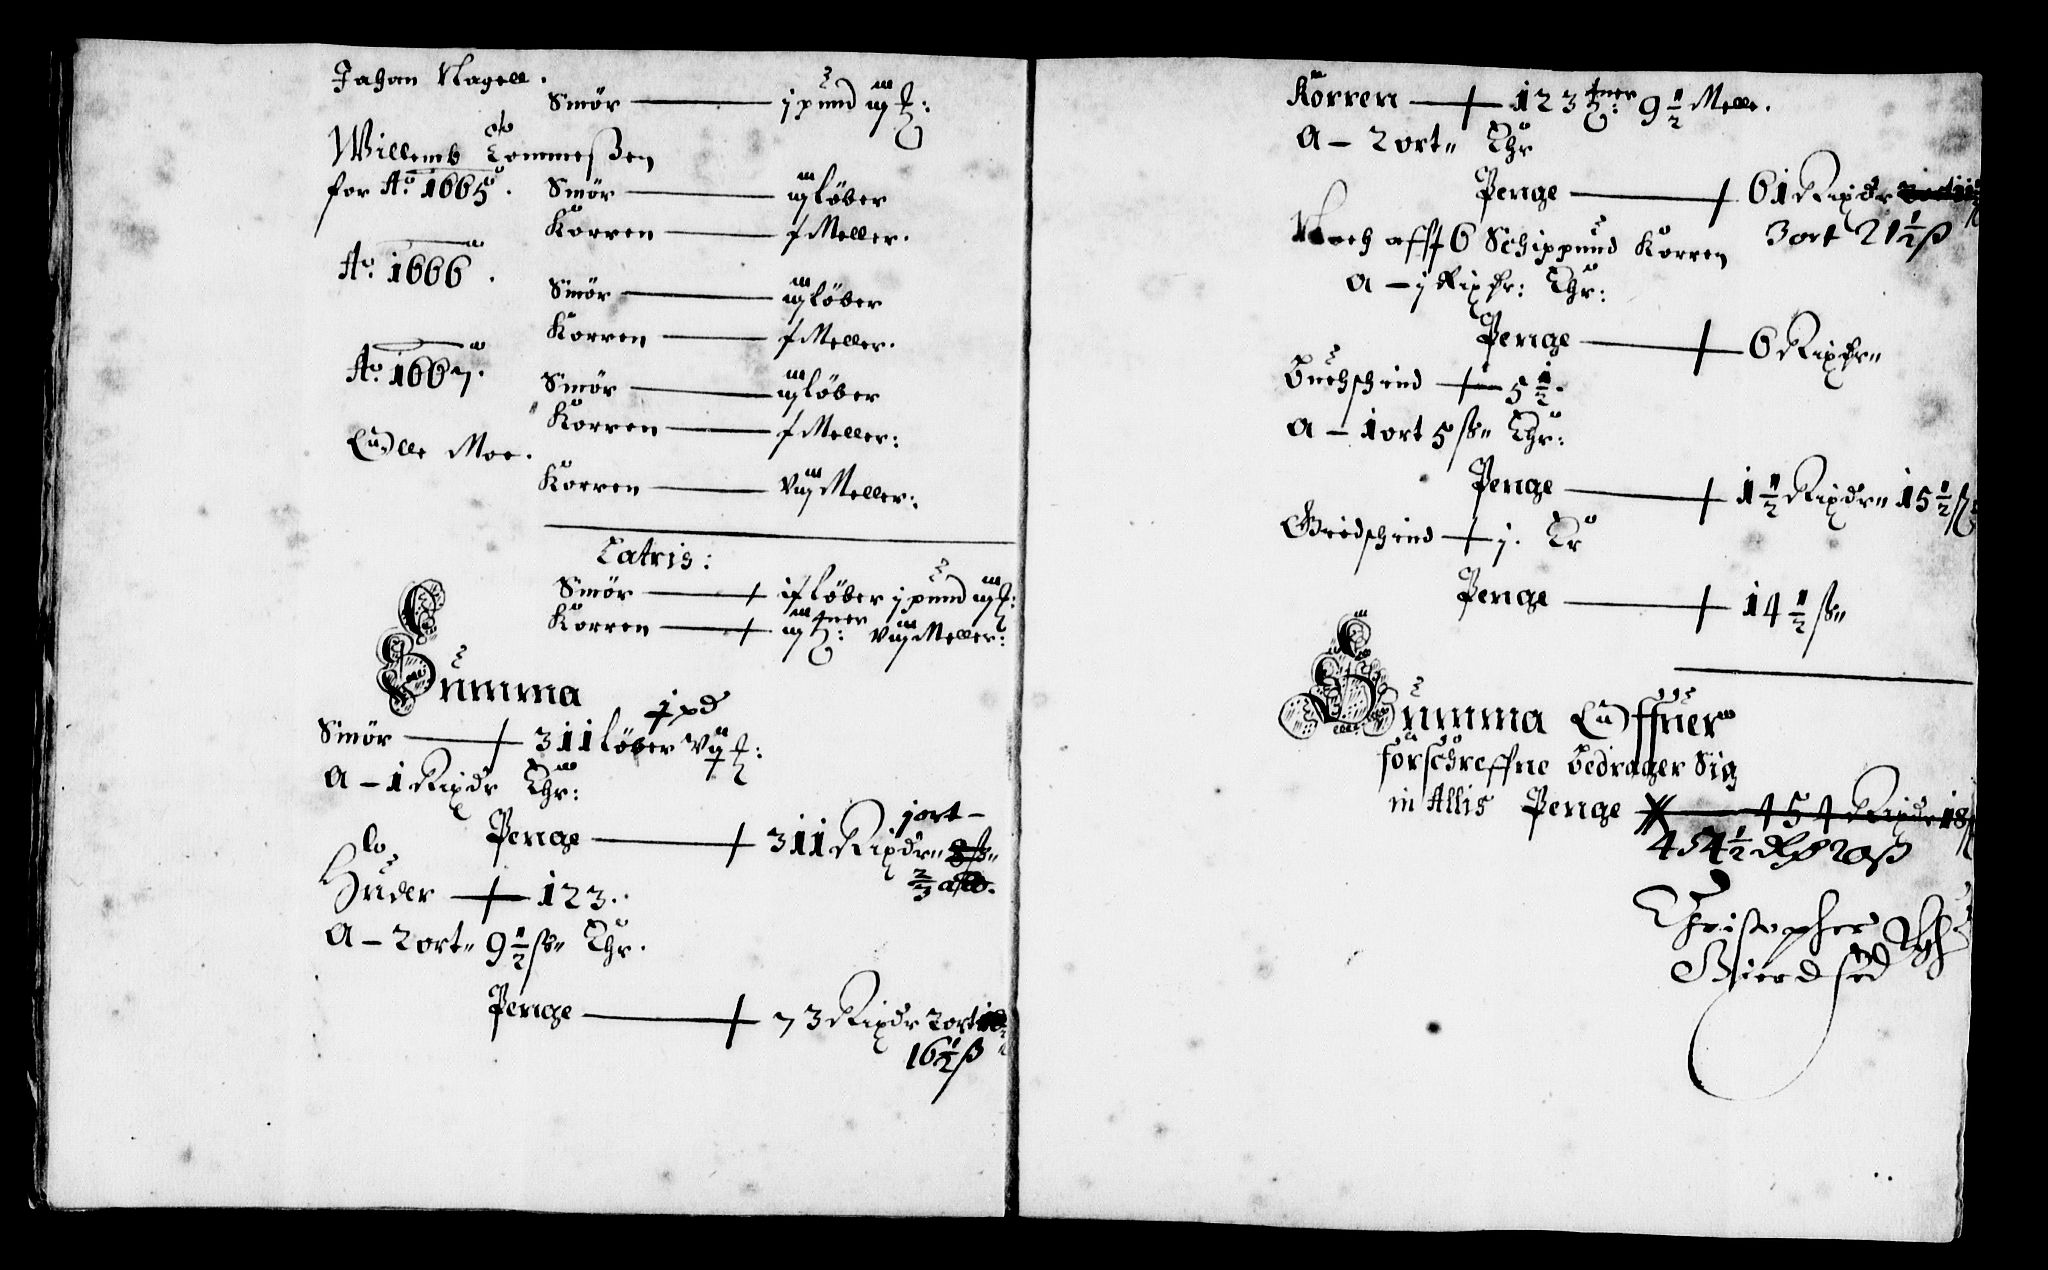 Jahan Nagell.
Smör — j pund iij ℔:
Willemb Tommeßen
for Ao. 1665.
Smör — iij löber
Korren — f Meller.
Ao. 1666.
Smör — iij löber
Korren — f Meller.
Ao. 1667.
Smör — iij löber
Korren — f Meller:
Olle Moe.
Korren — viij Meller:
Latris:
Smör — löber j pund iij ℔:
Korren — iij tner: viij Meller:
Summa
1 pd
Smör — 311 löber
A – 1 Rixdr Thr:
Penge — 311 Rixdr
1 ort –
2/3 alb.
Huder — 123.
A – 2 ort 9½ ß Thr.
Penge — 73 Rixdr 2 ort
16½ ß
Korren — 123 tner: 9½ Melle.
A – 2 ort Thr
Penge — 61 Rixdr
3 ort 21½ ß
Noch aff 6 Schippund Korren
A – j Rixdr: Thr:
Penge — 6 Rixdr
Buchschind — 5½.
A – 1 ort 5 ß Thr:
Penge — 1½ Rixdr 15½ ß
Giedschind — j. Tr
Penge — 14½ ß
Summa Offner
forschreffne Bedrager Sig
in Allis Penge — 454 Rixdr 18
454½ Rdr 20 ß
Christopher